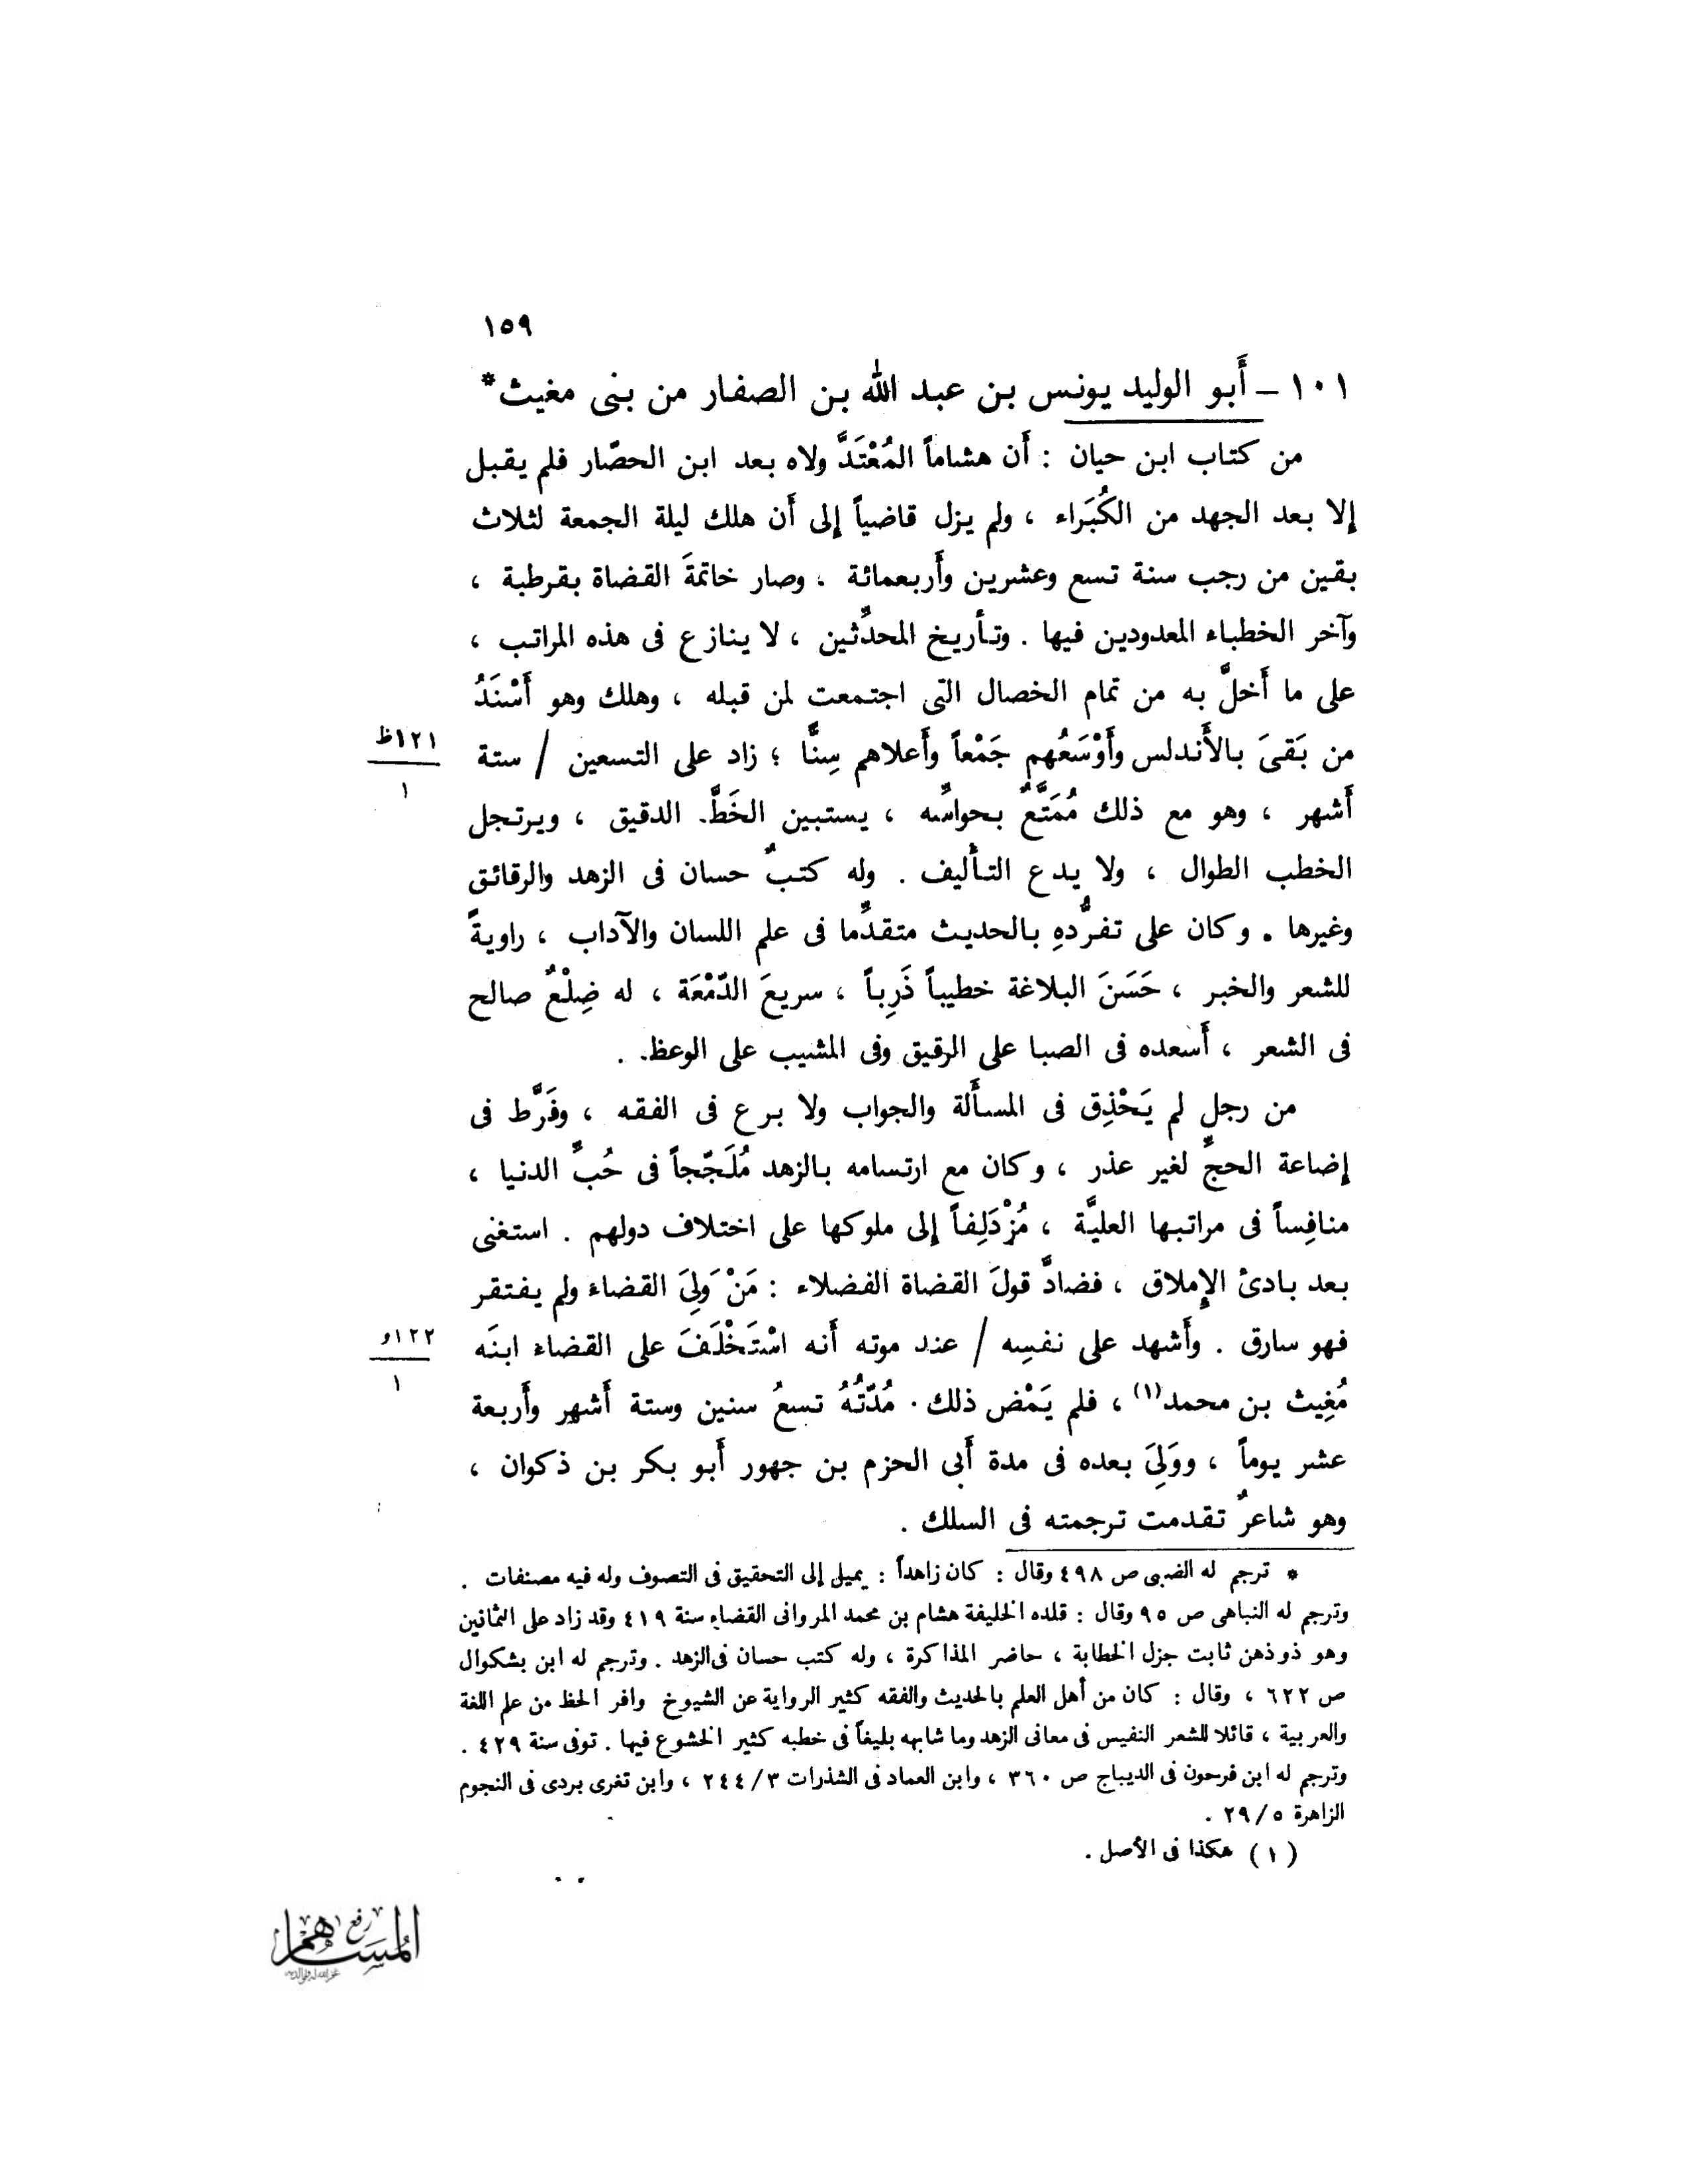 ١٥٩
١٠١ – أَبو الوليد يونس بن عبد الله بن الصفار من بنى مغيث*
من كتاب ابن حيان : أَن هشاماً المُعْتَدَّ ولاه بعد ابن الحصّار فلم يقبل
إلا بعد الجهد من الكُبَراء ، ولم يزل قاضياً إلى أَن هلك ليلة الجمعة لثلاث
بقين من رجب سنة تسع وعشرين وأَربعمائة ، وصار خاتمةَ القضاة بقرطبة ،
وآخر الخطباء المعدودين فيها . وتأريخ المحدِّثين ، لا ينازع فى هذه المراتب ،
على ما أَخلَّ به من تمام الخصال التى اجتمعت لمن قبله ، وهلك وهو أَسْنَدُ
من بَقىَ بالأَندلس وأَوْسَعُهم جَمْعاً وأَعلاهم سِنًّا ؛ زاد على التسعين / ستة
١٢١ظ
١
أَشهر ، وهو مع ذلك مُمَتَّعٌ بحواسِّه ، يستبين الخَطَّ الدقيق ، ويرتجل
الخطب الطوال ، ولا يدع التأليف . وله كتبٌ حسان فى الزهد والرقائق
وغيرها . وكان على تفرُّدهِ بالحديث متقدِّما فى علم اللسان والآداب ، راويةً
للشعر والخبر ، حَسَنَ البلاغة خطيباً ذَرِباً ، سريعَ الدّمْعَة ، له ضِلْعٌ صالح
فى الشعر ، أَسعده فى الصبا على الرقيق وفى المشيب على الوعظ .
من رجلٍ لم يَحْذِق فى المسأَلة والجواب ولا برع فى الفقه ، وفَرَّط فى
إضاعة الحجِّ لغير عذر ، وكان مع ارتسامه بالزهد مُلَجّجاً فى حُبِّ الدنيا ،
منافِساً فى مراتبها العليَّة ، مُزْدَلِفاً إلى ملوكها على اختلاف دولهم . استغنى
بعد بادئ الإملاق ، فضادَّ قولَ القضاة الفضلاء : مَنْ وَلِىَ القضاء ولم يفتقر
فهو سارق . وأَشهد على نفسِه / عند موته أَنه اسْتَخْلَفَ على القضاء ابنَه
١٢٢و
١
مُغِيث بن محمد(١) ، فلم يَمْض ذلك . مُدّتُهُ تسعُ سنين وستة أَشهر وأَربعة
عشر يوماً ، ووَلِىَ بعده فى مدة أَبى الحزم بن جهور أَبو بكر بن ذكوان ،
وهو شاعرٌ تقدمت ترجمته فى السلك .
* ترجم له الضبى ص ٤٩٨ وقال : كان زاهداً : يميل إلى التحقيق فى التصوف وله فيه مصنفات .
وترجم له النباهى ص ٩٥ وقال : قلده الخليفة هشام بن محمد المروانى القضاء سنة ٤١٩ وقد زاد على الثمانين
وهو ذو ذهن ثابت جزل الخطابة ، حاضر المذاكرة ، وله كتب حسان فى الزهد . وترجم له ابن بشكوال
ص ٦٢٢ ، وقال : كان من أهل العلم بالحديث والفقه كثير الرواية عن الشيوخ وافر الحظ من علم اللغة
والعربية ، قائلا للشعر النفيس فى معانى الزهد وما شابهه بليغاً فى خطبه كثير الخشوع فيها . توفى سنة ٤٢٩ .
وترجم له ابن فرحون فى الديباج ص ٣٦٠ ، وابن العماد فى الشذرات ٣/ ٢٤٤ ، وابن تغرى بردى فى النجوم
الزاهرة ٥/ ٢٩ .
( ١ ) هكذا فى الأصل .
رفع
المساهم